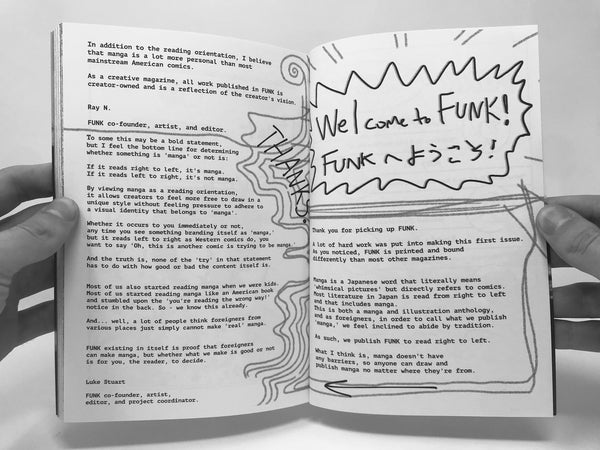 Welcome to FUNK!
FUNKへようこそ!
Thank you for picking up FUNK.
A lot of hard work was put into making this first issue.
As you noticed, FUNK is printed and bound
differently than most other magazines.
Manga is a Japanese word that literally means
'whimsical pictures' but directly refers to comics.
Most literature in Japan is read from right to left
and that includes manga.
This is both a manga and illustration anthology,
and as foreigners, in order to call what we publish
'manga,' we feel inclined to abide by tradition.
As such, we publish FUNK to read right to left.
What I think is, manga doesn't have
any barriers, so anyone can draw and
publish manga no matter where they're from.
In addition to the reading orientation, I believe
that manga is a lot more personal than most
mainstream American comics.
As a creative magazine, all work published in FUNK is
creator-owned and is a reflection of the creator's vision.
Ray N.
FUNK co-founder, artist, and editor.
THANKS!
To some this may be a bold statement,
but I feel the bottom line for determining
whether something is 'manga' or not is:
If it reads right to left, it's manga.
If it reads left to right, it's not manga.
By viewing manga as a reading orientation,
it allows creators to feel more free to draw in a
unique style without feeling pressure to adhere to
a visual identity that belongs to 'manga'.
Whether it occurs to you immediately or not,
any time you see something branding itself as 'manga,'
but it reads left to right as Western comics do, you
want to say 'Oh, this is another comic trying to be manga.'
And the truth is, none of the 'try' in that statement
has to do with how good or bad the content itself is.
Most of us also started reading manga when we were kids.
Most of us started reading manga like an American book
and stumbled upon the 'you're reading the wrong way!'
notice in the back. So - we know this already.
And... well, a lot of people think foreigners from
various places just simply cannot make 'real' manga.
FUNK existing in itself is proof that foreigners
can make manga, but whether what we make is good or not
is for you, the reader, to decide.
Luke Stuart
FUNK co-founder, artist,
editor, and project coordinator.